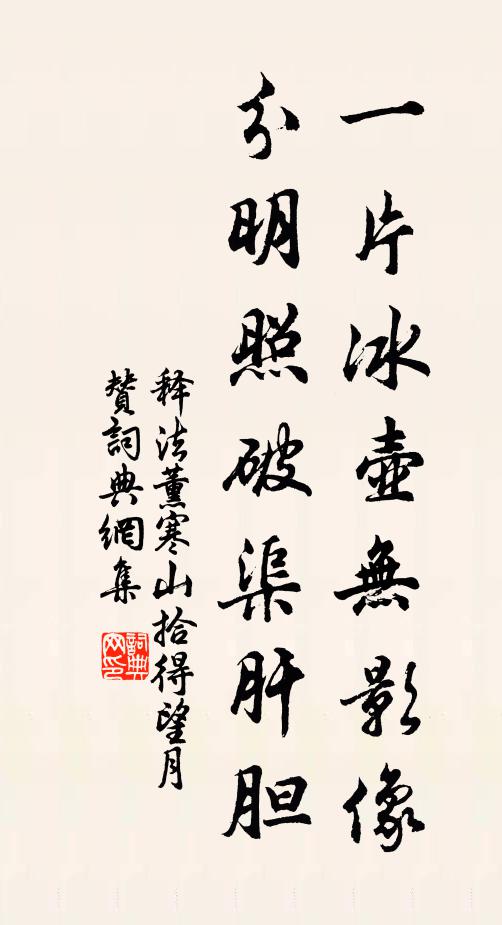 一片冰壺無影像
分明照破渠肝胆
释法薰寒山拾得望月
赞詞典網集
詞典網印